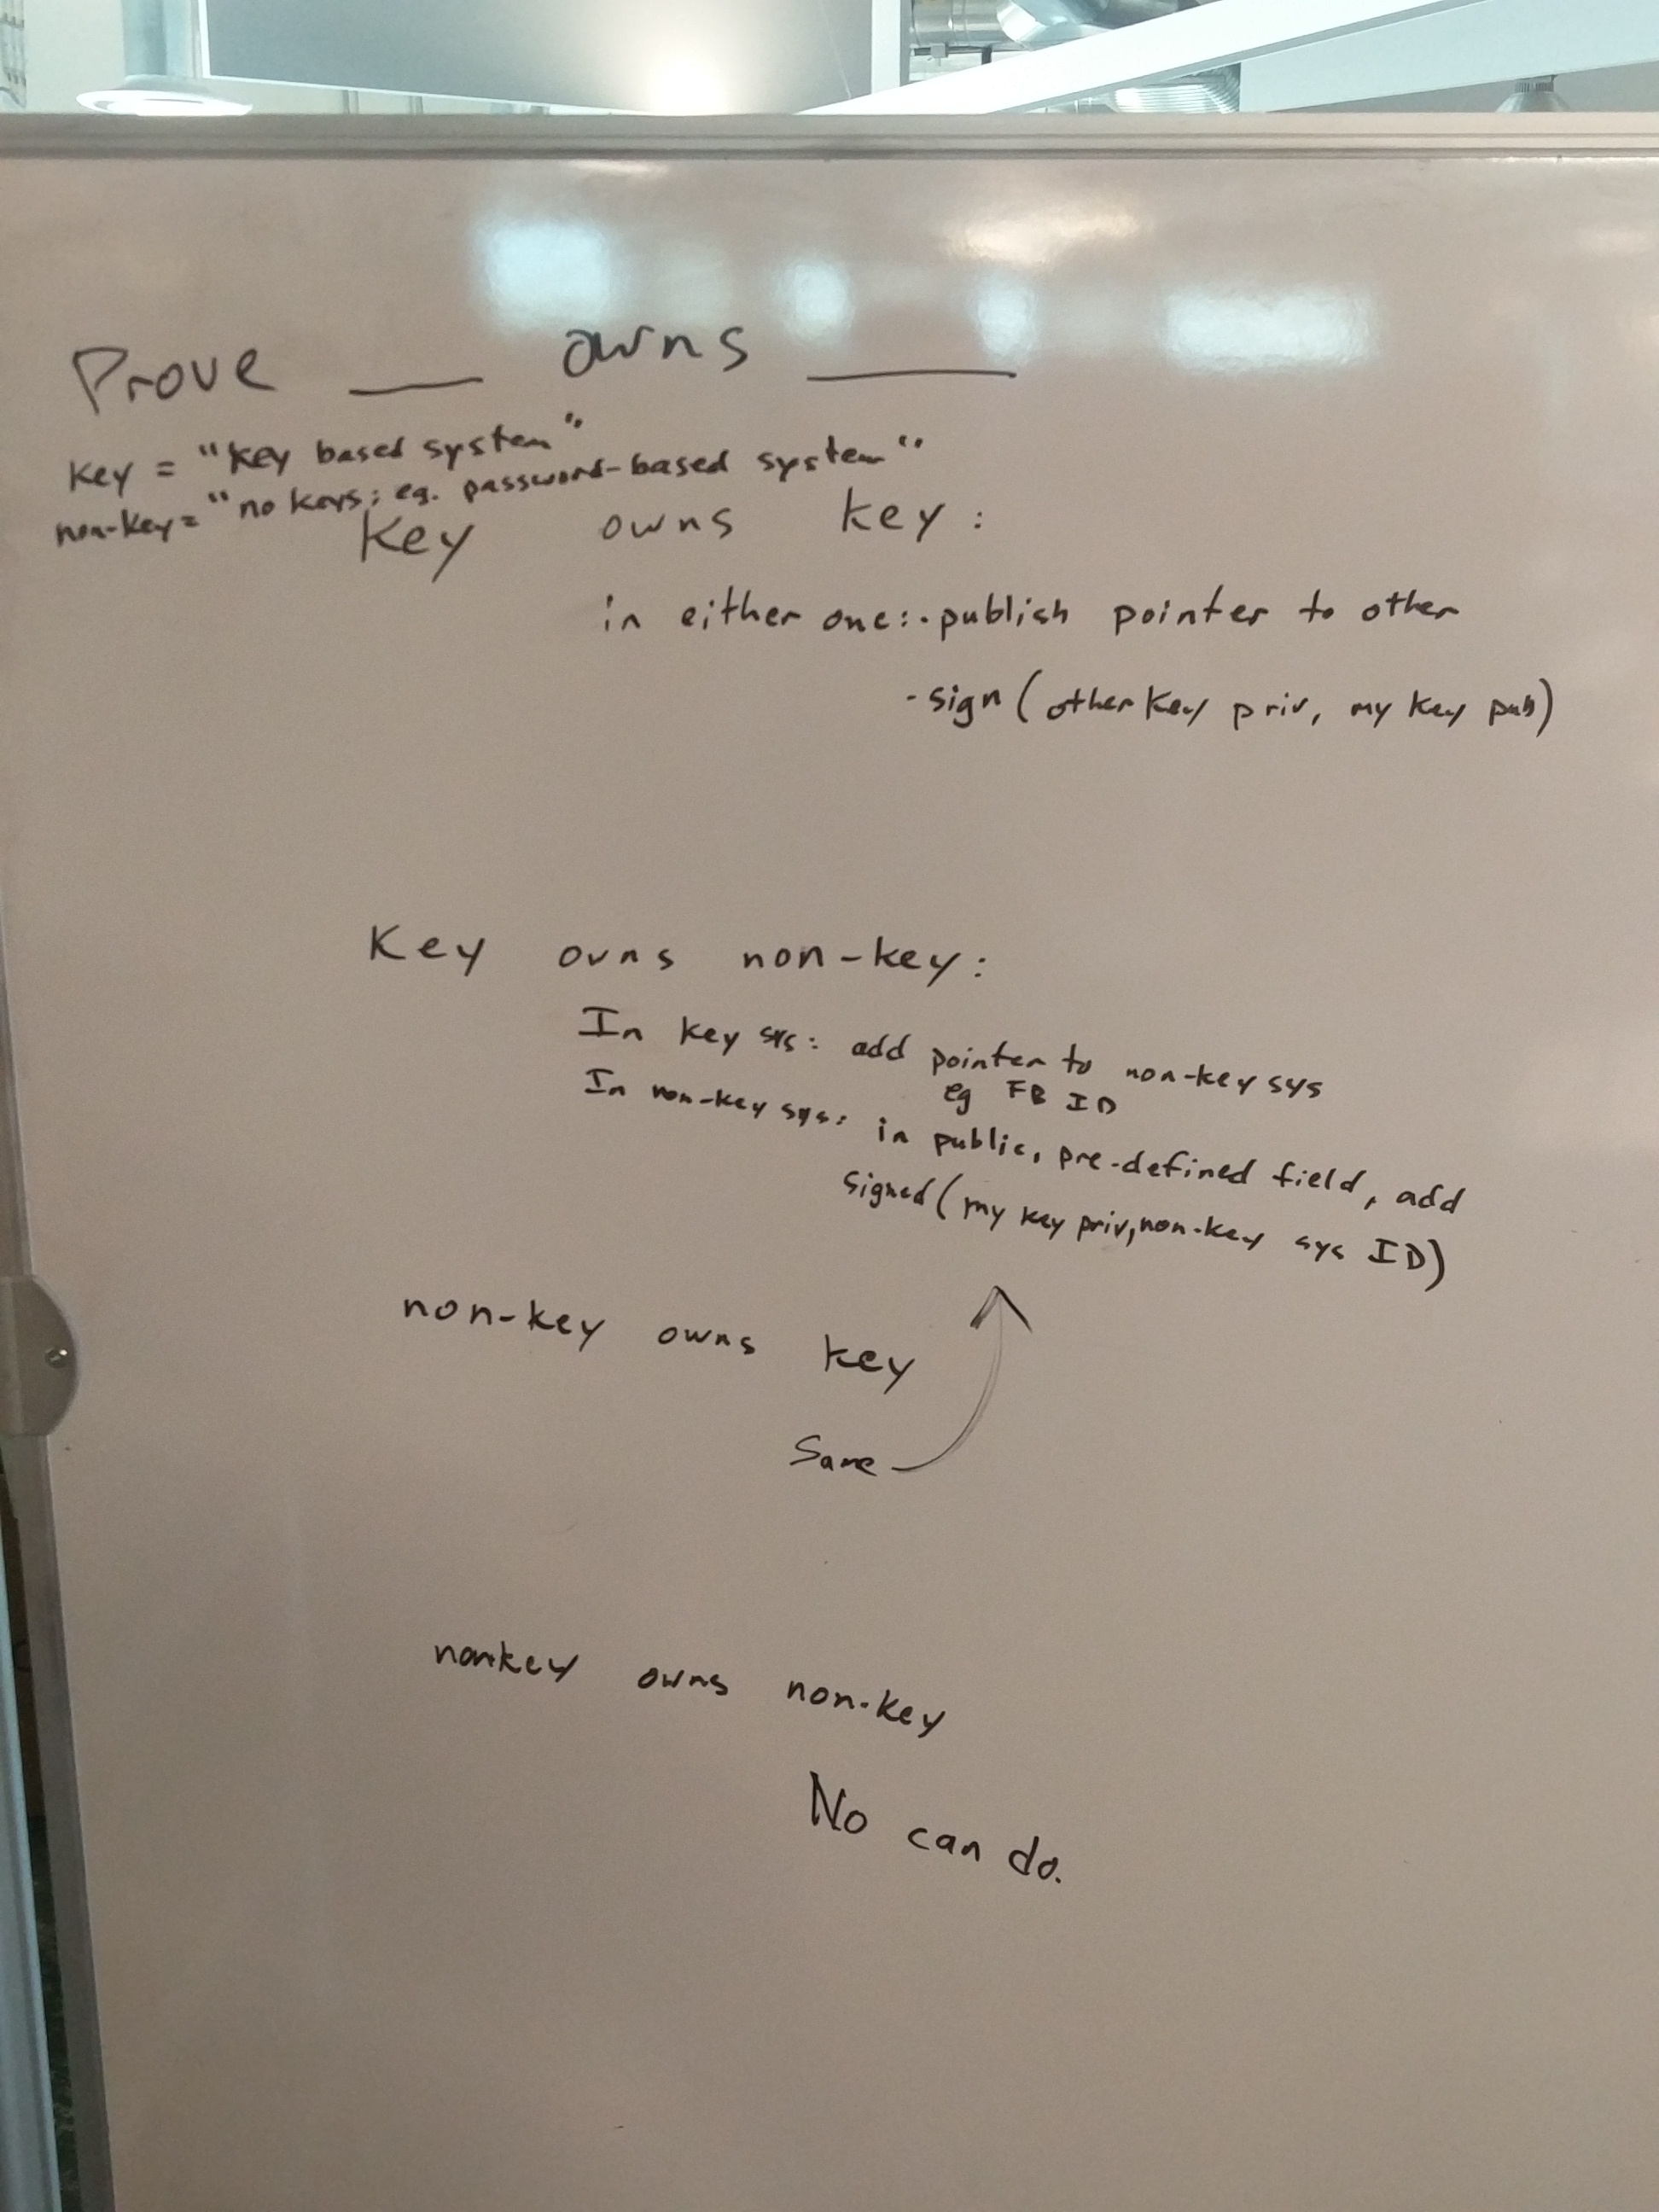 Prove ___ owns ___
Key = "Key based system"
non-key = "no keys; eg. password-based system"
Key owns key:
in either one: · publish pointer to other
- sign (other key priv, my key pub)
Key owns non-key:
In key sys: add pointer to non-key sys
eg FB ID
In non-key sys: in public, pre-defined field, add
signed (my key priv, non-key sys ID)
non-key owns key
Same
nonkey owns non-key
No can do.